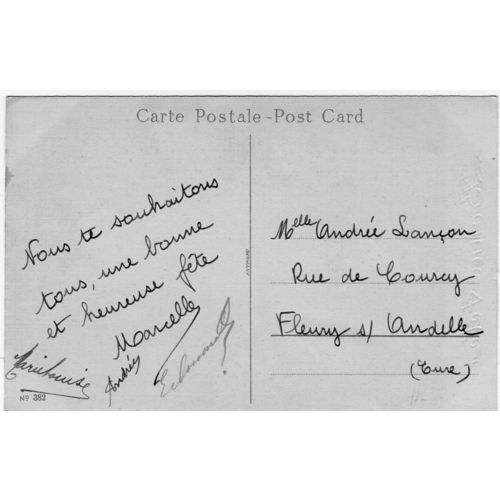 Carte Postale - Post Card
Nous te souhaitons
tous, une bonne
et heureuse fête
Marcelle
Andrée
Marie Louise
Nº 382
Melle Andrée Lançon
Rue de Courcy
Fleury s/ Andelle
(Eure)